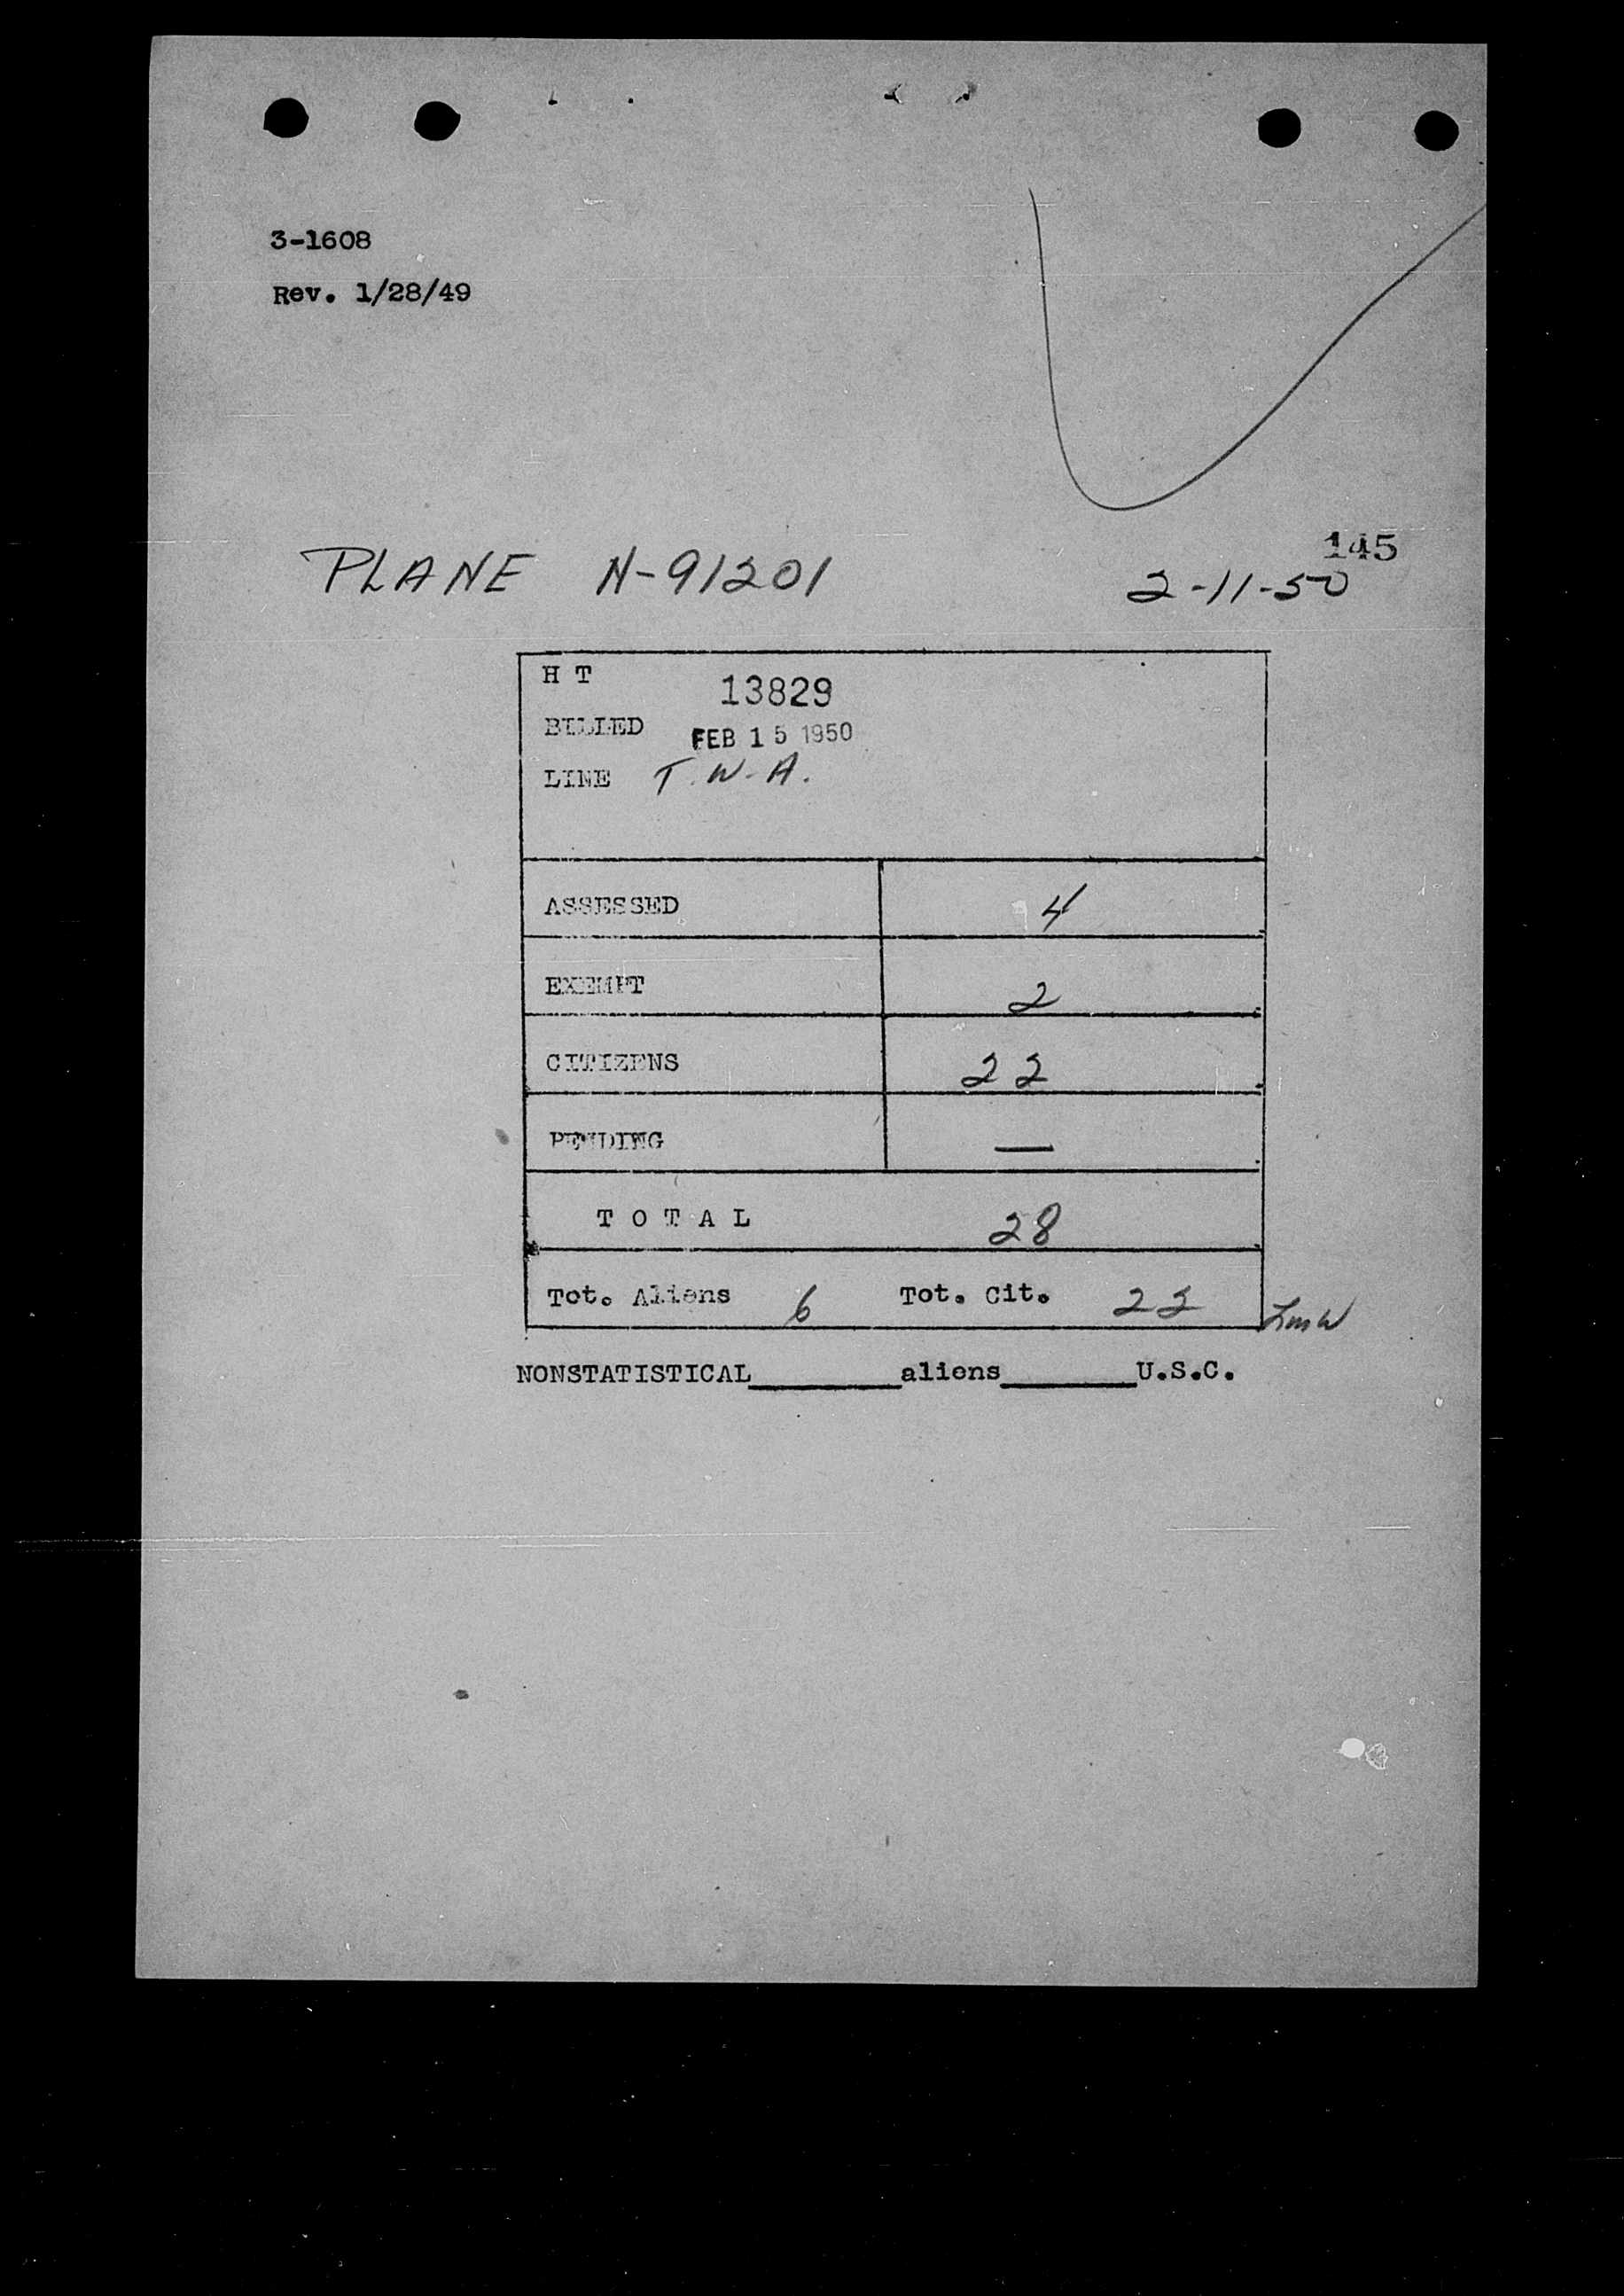 3-1608
Rev. 1/28/49
145
PLANE N-91201 2-11-50
H T 13829
BILLED FEB 15 1950
LINE T.W.A.
ASSESSED 4
EXEMPT 2
CITIZENS 22
PENDING —
TOTAL 28
Tot. Aliens 6 Tot. Cit. 22
NONSTATISTICAL________aliens_______U.S.C.